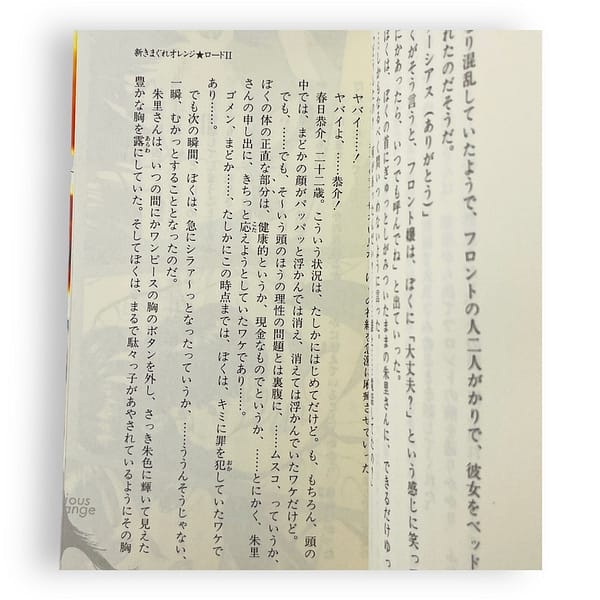 り混乱していたようで、フロントの人二人がかりで、彼女をベッド
れたのだそうだ。
ーシアス（ありがとう）」
くがそう言うと、フロント嬢は、ぼくに「大丈夫？」という感じに笑っ
にかあったら、いつでも呼んでね」と出ていった。
ぼくは、ぼくの首にぎゅっとしがみついたままの朱里さんに、できるだけゆっ
ヤバイ……！
ヤバイよ、……恭介！
春日恭介、二十二歳。こういう状況は、たしかにはじめてだけど。も、もちろん、頭の
中では、まどかの顔がパッパッと浮かんでは消え、消えては浮かんでいたワケだけど。
でも、……でも、そ〜いう頭のほうの理性の問題とは裏腹に、……ムスコ、っていうか、
ぼくの体の正直な部分は、健康的というか、現金なものでというか、……とにかく、朱里
さんの申し出に、きちっと応えようとしていたワケであり……。
ゴメン、まどか……、たしかにこの時点までは、ぼくは、キミに罪を犯していたワケで
あり……。
でも次の瞬間、ぼくは、急にシラァ〜っとなったっていうか、……ううんそうじゃない、
一瞬、むかっとすることとなったのだ。
朱里さんは、いつの間にかワンピースの胸のボタンを外し、さっき朱色に輝いて見えた
豊かな胸を露にしていた。そしてぼくは、まるで駄々っ子があやされているようにその胸
新きまぐれオレンジ★ロードII
ious
ange